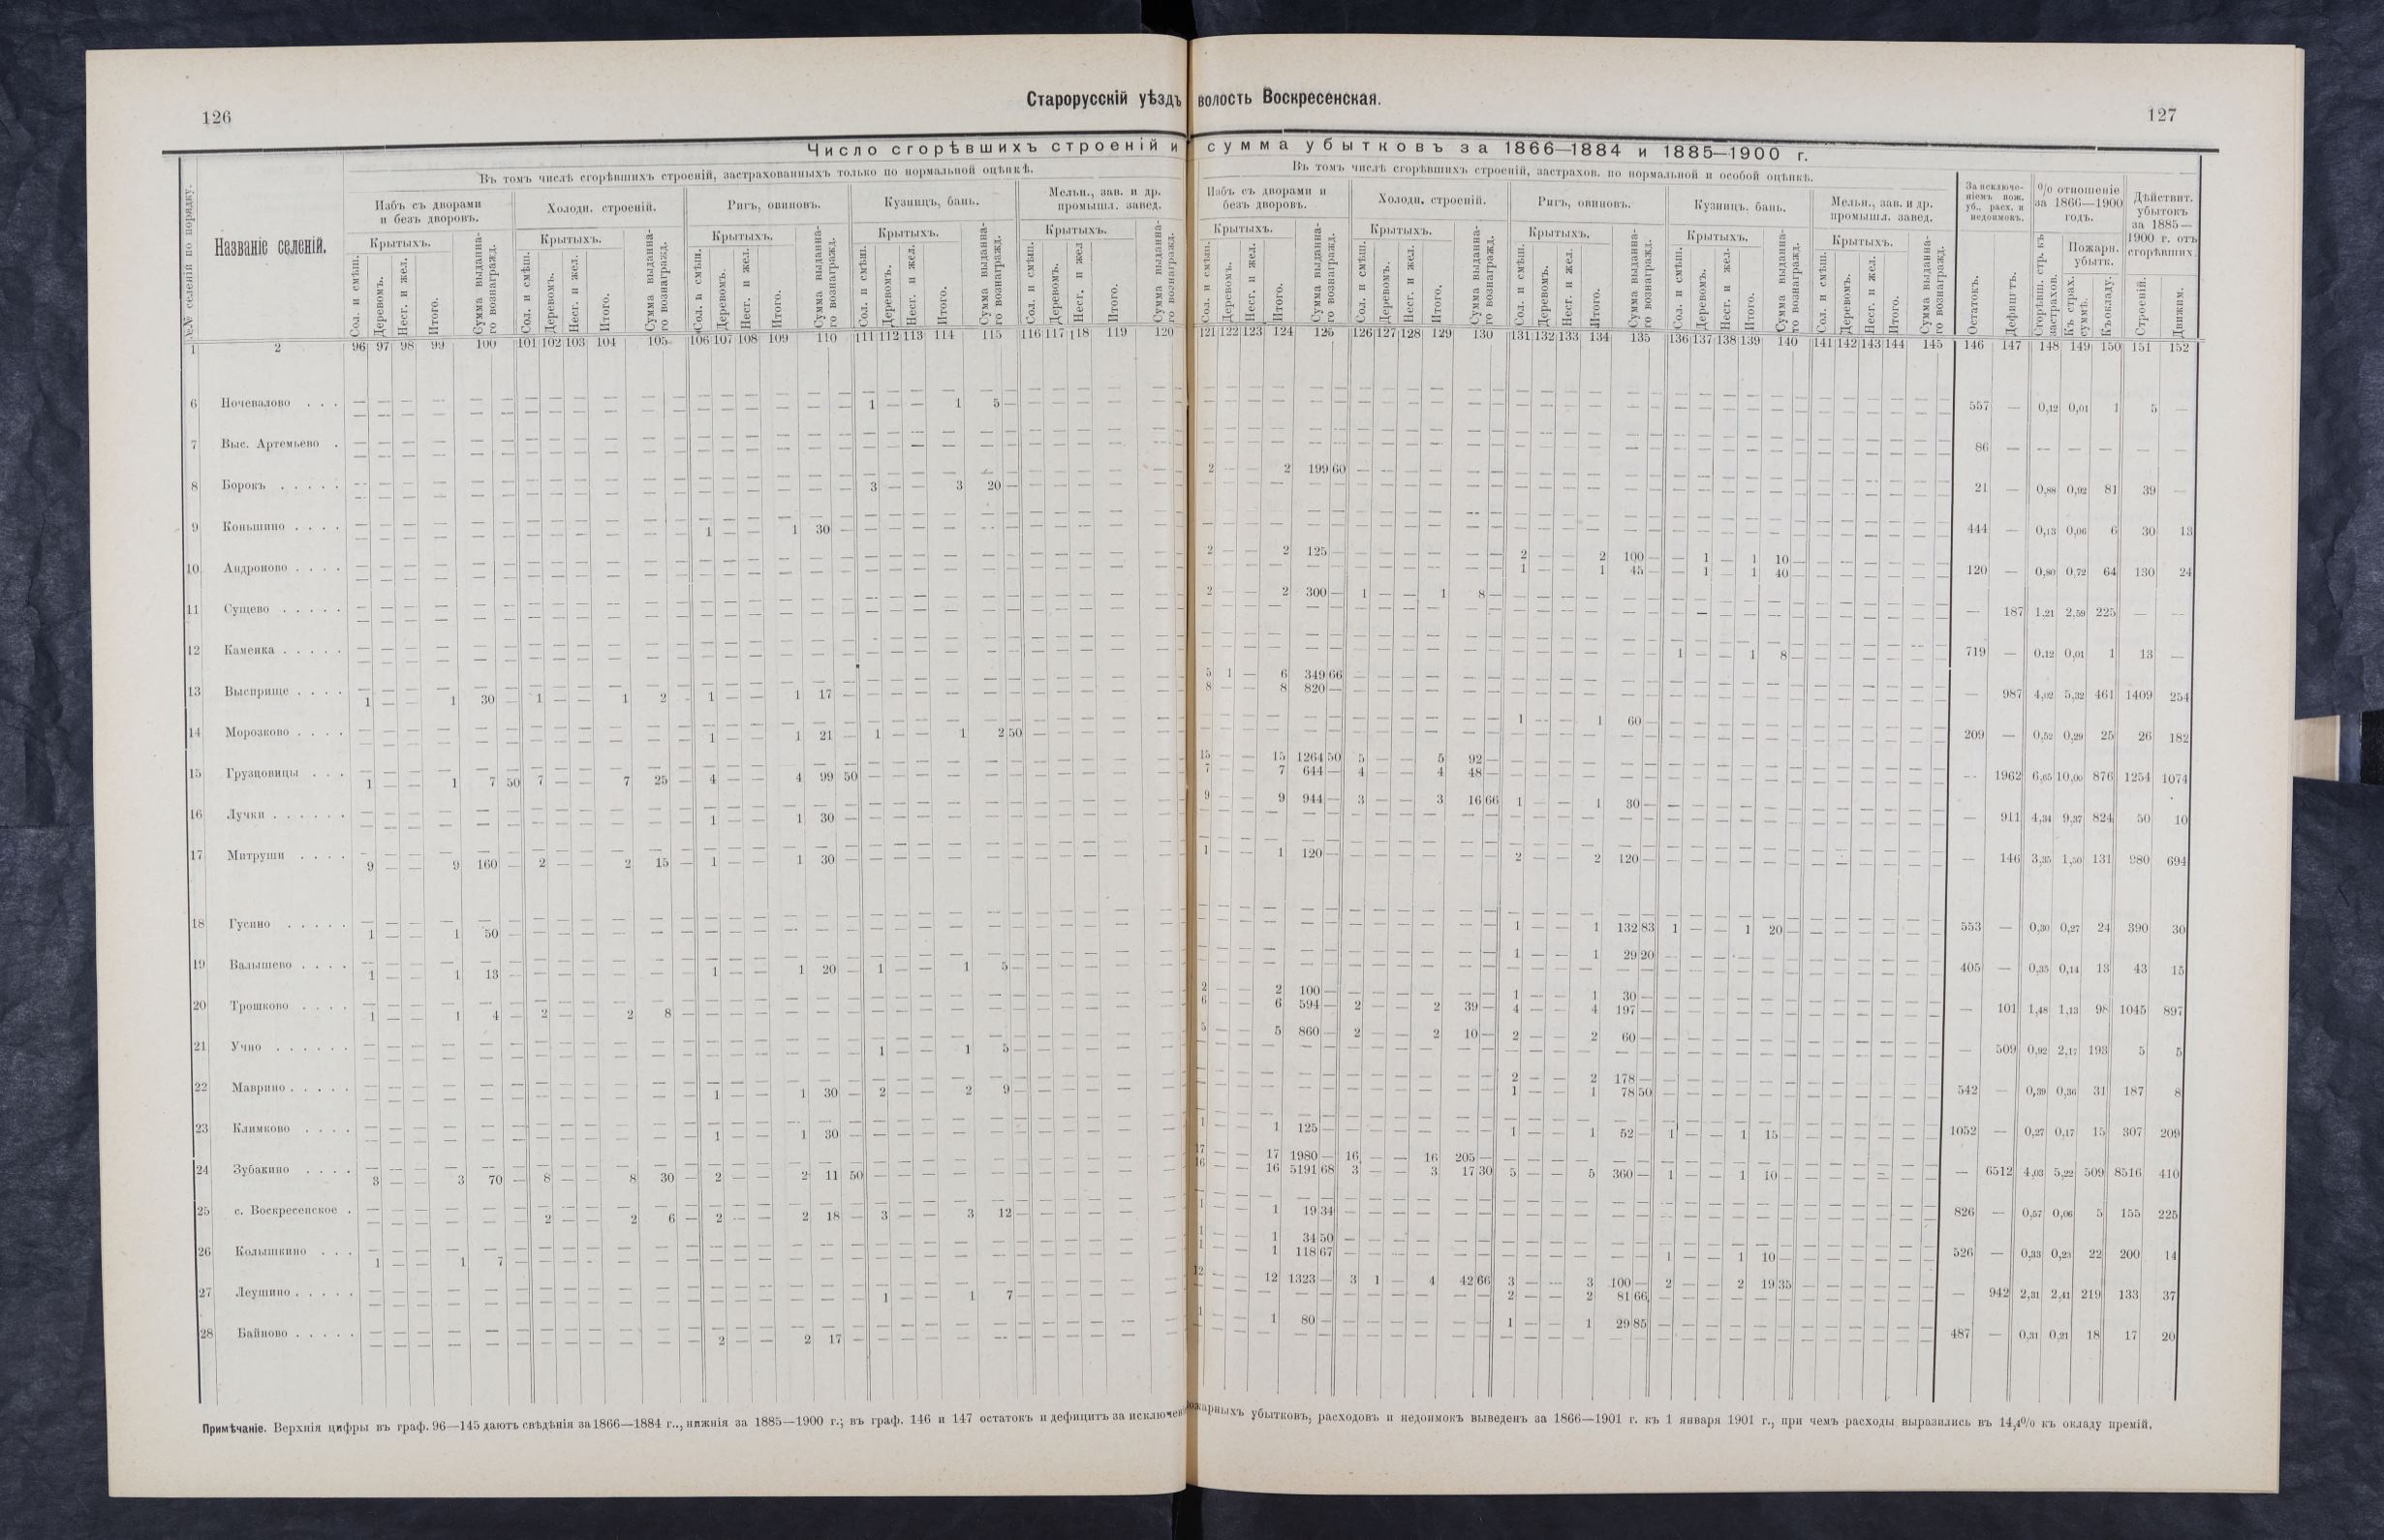 126
Старорусскій уѣздъ волость Воскресенская.
127
Число сгорѣвшихъ строеній и сумма убытковъ за 1866—1884 и 1885—1900 г.
№№ селеній по порядку.
Названіе селеній.
Въ томъ числѣ сгорѣвшихъ строеній, застрахованныхъ только по нормальной оцѣнкѣ.
Избъ съ дворами и безъ дворовъ.
Холодн. строеній.
Ригъ, овиновъ.
Кузницъ, бань.
Мельн., зав. и др. промышл. завед.
Крытыхъ. Крытыхъ. Крытыхъ. Крытыхъ. Крытыхъ.
Сол. и смѣш. Деревомъ. Несг. и жел. Итого. Сумма выданнаго вознагражд.
Въ томъ числѣ сгорѣвшихъ строеній, застрахов. по нормальной и особой оцѣнкѣ.
Избъ съ дворами и безъ дворовъ.
Холодн. строеній.
Ригъ, овиновъ.
Кузницъ. бань.
Мельн., зав. и др. промышл. завед.
Крытыхъ. Крытыхъ. Крытыхъ. Крытыхъ. Крытыхъ.
За исключеніемъ пож. уб., расх. и недоимокъ.
Остатокъ. Дефицитъ.
% отношеніе за 1866—1900 годъ.
Сгорѣвш. стр. къ застрахов.
Пожарн. убытк.
Къ страх. суммѣ. Къ окладу.
Дѣйствит. убытокъ за 1885—1900 г. отъ сгорѣвшихъ
Строеній. Движим.
1 2 96 97 98 99 100 101 102 103 104 105 106 107 108 109 110 111 112 113 114 115 116 117 118 119 120 121 122 123 124 125 126 127 128 129 130 131 132 133 134 135 136 137 138 139 140 141 142 143 144 145 146 147 148 149 150 151 152
6 Ночевалово . . . 1 — — 1 5 — 557 — 0,12 0,01 1 5 —
7 Выс. Артемьево . 86 — — — — — —
2 — — 2 199 60
8 Борокъ . . . . . 3 — — 3 20 — 21 — 0,88 0,92 81 39 —
9 Коньшино . . . . 1 — — 1 30 — 444 — 0,13 0,06 6 30 13
2 — — 2 125 — 2 — — 2 100 — — 1 — 1 10 —
10 Андроново . . . . 1 — — 1 45 — — 1 — 1 40 — 120 — 0,80 0,72 64 130 24
2 — — 2 300 — 1 — — 1 8 —
11 Сущево . . . . . — 187 1,21 2,59 225 — —
12 Каменка . . . . . 1 — — 1 8 — 719 — 0,12 0,01 1 13 —
5 1 — 6 349 66
13 Высприще . . . . 1 — — 1 30 — 1 — — 1 2 - 1 — — 1 17 — 8 — — 8 820 — — 987 4,02 5,32 461 1409 254
1 — — 1 60 —
14 Морозково . . . . 1 — — 1 21 — 1 — — 1 2 50 209 — 0,52 0,29 25 26 182
15 — — 15 1264 50 5 — — 5 92 —
15 Грузцовицы . . . 1 — — 1 7 50 7 — — 7 25 — 4 — — 4 99 50 7 — — 7 644 — 4 — — 4 48 — — 1962 6,65 10,00 876 1254 1074
9 — — 9 944 — 3 — — 3 16 66 1 — — 1 30 —
16 Лучки . . . . . . 1 — — 1 30 — — 911 4,34 9,37 824 50 10
1 — — 1 120 —
17 Митруши . . . . 9 — — 9 160 — 2 — — 2 15 — 1 — — 1 30 — 2 — — 2 120 — — 146 3,35 1,50 131 980 694
18 Гусино . . . . . 1 — — 1 50 — 1 — — 1 132 83 1 — — 1 20 — 553 — 0,30 0,27 24 390 30
1 — — 1 29 20
19 Валышево . . . . 1 — — 1 13 — 1 — — 1 20 — 1 — — 1 5 — 405 — 0,35 0,14 13 43 15
2 — — 2 100 — 1 — — 1 30 —
20 Трошково . . . . 1 — — 1 4 — 2 — — 2 8 — 6 — — 6 594 — 2 — — 2 39 — 4 — — 4 197 — — 101 1,48 1,13 98 1045 897
5 — — 5 860 — 2 — — 2 10 — 2 — — 2 60 —
21 Учно . . . . . . 1 — — 1 5 — — 509 0,92 2,17 193 5 5
2 — — 2 178 —
22 Маврино . . . . . 1 — — 1 30 — 2 — — 2 9 — 1 — — 1 78 50 542 — 0,39 0,36 31 187 8
23 Климково . . . . 1 — — 1 30 — 1 — — 1 125 — 1 — — 1 52 — 1 — — 1 15 — 1052 — 0,27 0,17 15 307 209
17 — — 17 1980 — 16 — — 16 205 —
24 Зубакино . . . . 3 — — 3 70 — 8 — — 8 30 — 2 — — 2 11 50 16 — — 16 5191 68 3 — — 3 17 30 5 — — 5 360 — 1 — — 1 10 — — 6512 4,03 5,22 509 8516 410
25 с. Воскресенское . 2 — — 2 6 — 2 — — 2 18 — 3 — — 3 12 — 1 — — 1 19 34 826 — 0,57 0,06 5 155 225
1 — — 1 34 50
26 Колышкино . . . 1 — — 1 7 — 1 — — 1 118 67 1 — — 1 10 — 526 — 0,33 0,23 22 200 14
12 — — 12 1323 — 3 1 — 4 42 66 3 — — 3 100 — 2 — — 2 19 35
27 Леушино . . . . . 1 — — 1 7 — 2 — — 2 81 66 — 942 2,31 2,41 219 133 37
1 — — 1 80 — 1 — — 1 29 85
28 Байново . . . . . 2 — — 2 17 — 487 — 0,31 0,21 18 17 20
Примѣчаніе. Верхнія цифры въ граф. 96—145 даютъ свѣдѣнія за 1866—1884 г.., нижнія за 1885—1900 г.; въ граф. 146 и 147 остатокъ и дефицитъ за исключен пожарныхъ убытковъ, расходовъ и недоимокъ выведенъ за 1866—1901 г. къ 1 января 1901 г., при чемъ расходы выразились въ 14,4% къ окладу премій.